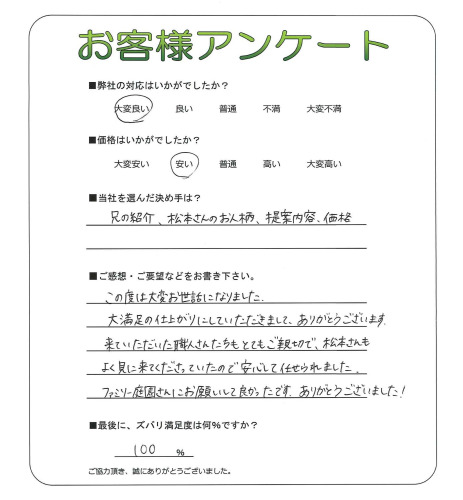 お客様アンケート
■弊社の対応はいかがでしたか？
大変良い 良い 普通 不満 大変不満
■価格はいかがでしたか？
大変安い 安い 普通 高い 大変高い
■当社を選んだ決め手は？
兄の紹介、松本さんのお人柄、提案内容、価格
■ご感想・ご要望などをお書き下さい。
この度は大変お世話になりました。
大満足の仕上がりにしていただきまして、ありがとうございます。
来ていただいた職人さんたちもとてもご親切で、松本さんも
よく見に来てくださっていたので安心して任せられました。
ファミリー庭園さんにお願いして良かったです。ありがとうございました！
■最後に、ズバリ満足度は何％ですか？
100 ％
ご協力頂き、誠にありがとうございました。